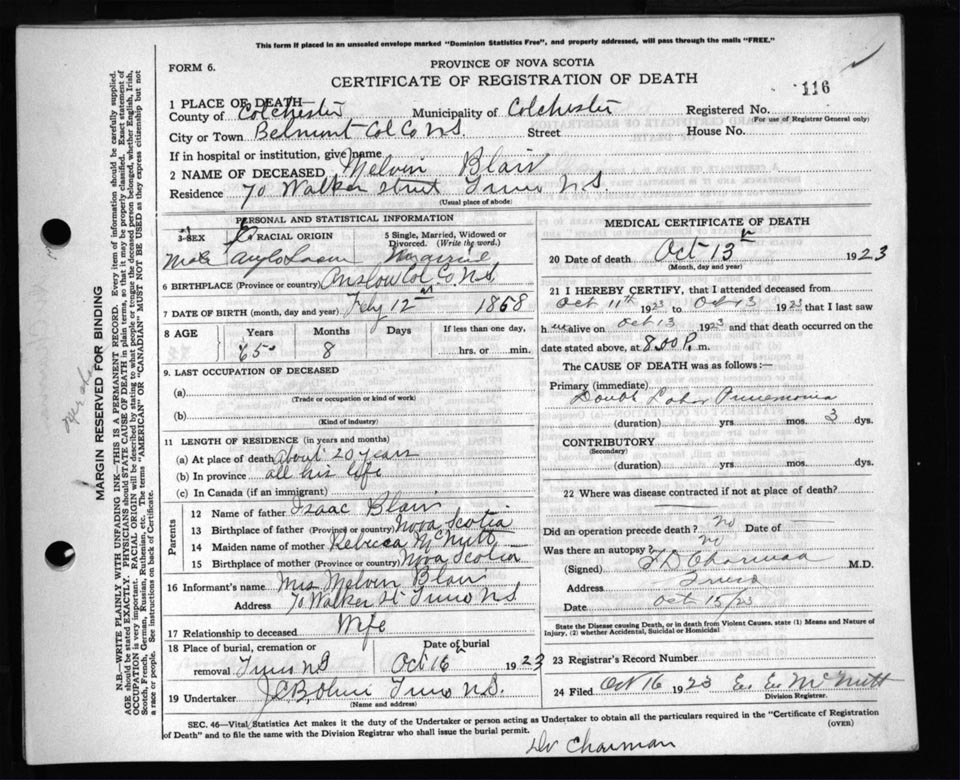 This form if placed in an unsealed envelope marked "Dominion Statistics Free", and properly addressed, will pass through the mails "FREE."
FORM 6.
PROVINCE OF NOVA SCOTIA
CERTIFICATE OF REGISTRATION OF DEATH
116
1 PLACE OF DEATH—
County of Colchester Municipality of Colchester Registered No.
(For use of Registrar General only)
City or Town Belmont Col Co N.S. Street House No.
If in hospital or institution, give name
2 NAME OF DECEASED Melvin Blair
Residence 70 Walker street Truro N.S.
(Usual place of abode)
PERSONAL AND STATISTICAL INFORMATION
3 SEX 4 RACIAL ORIGIN 5 Single, Married, Widowed or Divorced. (Write the word.)
Male Anglo Saxon Married
6 BIRTHPLACE (Province or country) Onslow Col. Co. N.S
7 DATE OF BIRTH (month, day and year) Feby 12 1858
8 AGE Years Months Days If less than one day,
65 8 hrs. or min.
9. LAST OCCUPATION OF DECEASED
(a)
(Trade or occupation or kind of work)
(b)
(Kind of industry)
11 LENGTH OF RESIDENCE (in years and months)
(a) At place of death about 20 years
(b) In province all his life
(c) In Canada (if an immigrant)
Parents
12 Name of father Isaac Blair
13 Birthplace of father (Province or country) Nova Scotia
14 Maiden name of mother Rebecca McNutt
15 Birthplace of mother (Province or country) Nova Scotia
16 Informant's name Mrs Melvin Blair
Address 70 Walker St Truro N S
17 Relationship to deceased Wife
18 Place of burial, cremation or removal Date of burial
Truro N S Oct 16 1923
19 Undertaker Truro N.S.
(Name and address)
MEDICAL CERTIFICATE OF DEATH
20 Date of death Oct 13th 1923
(Month, day and year)
21 I HEREBY CERTIFY, that I attended deceased from
Oct 11th 1923 to Oct 13 1923 that I last saw
him alive on Oct 13 1923 and that death occurred on the
date stated above, at 8.00 P. m.
The CAUSE OF DEATH was as follows:—
Primary (immediate)
Double Lobar Pneumonia
(duration) yrs. mos. 3 dys.
CONTRIBUTORY
(Secondary)
(duration) yrs. mos. dys.
22 Where was disease contracted if not at place of death?
Did an operation precede death? no Date of —
Was there an autopsy? no
(Signed) Charman M.D.
Address Truro
Date Oct 15/23
State the Disease causing Death, or in death from Violent Causes, state (1) Means and Nature of Injury, (2) whether Accidental, Suicidal or Homicidal
23 Registrar's Record Number
24 Filed Oct 16 1923 McNutt
Division Registrar.
SEC. 46—Vital Statistics Act makes it the duty of the Undertaker or person acting as Undertaker to obtain all the particulars required in the "Certificate of Registration of Death" and to file the same with the Division Registrar who shall issue the burial permit.
(OVER)
Dr Charman
MARGIN RESERVED FOR BINDING
N.B.—WRITE PLAINLY WITH UNFADING INK—THIS IS A PERMANENT RECORD. Every item of information should be carefully supplied.
AGE should be stated EXACTLY. PHYSICIANS should STATE CAUSE OF DEATH in plain terms, so that it may be properly classified. Exact statement of
OCCUPATION is very important. RACIAL ORIGIN will be described by stating to what people or tongue the deceased person belonged, whether English, Irish,
Scotch, French, German, Russian, Ruthenian, etc. The terms "AMERICAN" or "CANADIAN" MUST NOT BE USED as they express citizenship but not
a race or people. See instructions on back of Certificate.